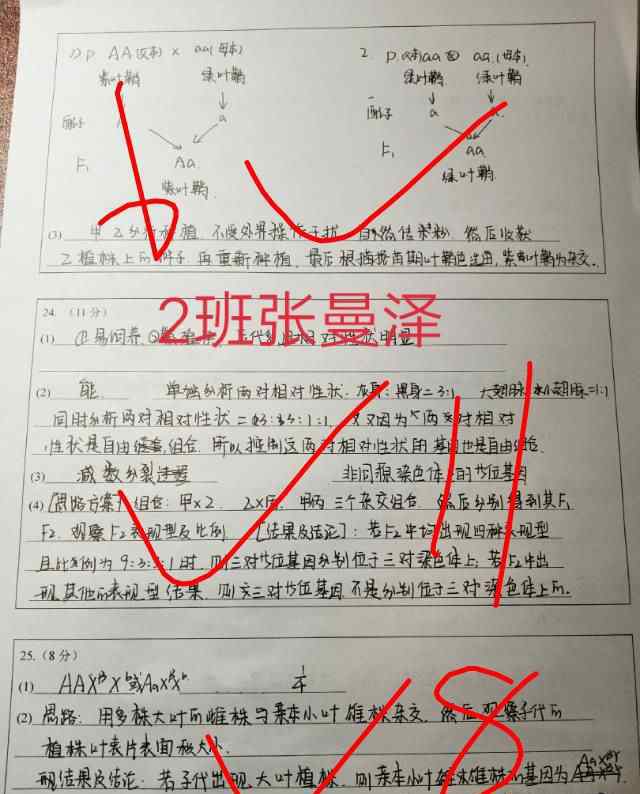 (1) P AA(父本) × aa(母本)
紫叶鞘 绿叶鞘
配子 a
F₁ Aa
紫叶鞘
2. P (父本)aa ⊗ aa (母本)
绿叶鞘 绿叶鞘
配子 a
F₁ aa
绿叶鞘
(3) 甲乙 种植, 不受外界 干扰, 自然传粉, 然后收获
乙植株上的种子, 再重新种植, 最后根据 苗期叶鞘色 紫叶鞘为杂交.
6
2班张曼泽
24. (11分)
(1) ①易饲养, ② 相对性状明显
(2) 能. 单独分析两对相对性状, 灰身:黑身=3:1, 大翅脉 小翅脉=1:1
同时分析两对相对性状 1:1, 又因为 两 对相对
性状是自由 组合, 所以控制这两对相对性状的基因也是自由组合.
(3) 减数分裂 非同源染色体上的 基因
(4) [思路方案] 组合: 甲×乙, 乙×丙, 甲丙 三个杂交组合, 然后分别得到其F₁
F₂, 观察F₂表现型及比例. [结果及结论]: 若F₂中均出现四种表现型
且比例为 9:3:3:1 时, 则三对等位基因分别位于三对染色体上, 若F₂中出
现其他的表现型结果, 则 三对等位基因不是分别位于三对染色体上的.
11
25. (8分)
(1) AAXᴮXᵇ或AaXᴮXᵇ 1/4
(2) 思路: 用多株大叶的雌株与亲本小叶雄株杂交, 然后观察子代的
植株叶片表面积大小.
现结果及结论: 若子代出现 大叶植株, 则亲本小叶 雄株的基因为
8